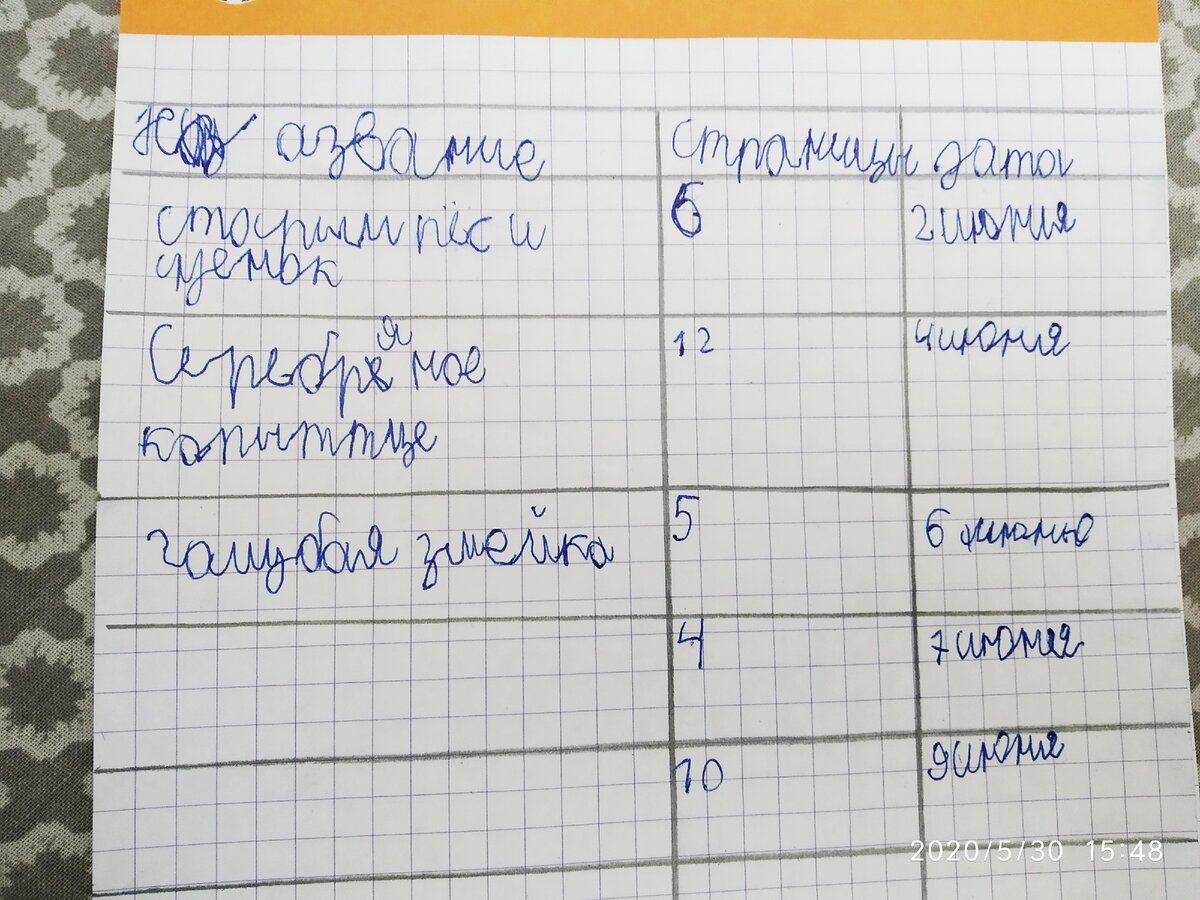 название страницы дата
старый пёс и 6 2 июня
щенок
Серебряное 12 4 июня
копыттце
галубая змейка 5 6 июню
4 7 июня
10 9 июня
2020/5/30 15:48